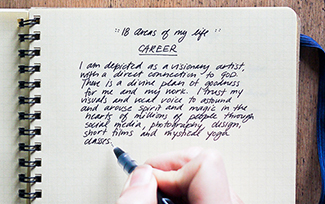 "18 areas of my life"
CAREER
I am depicted as a visionary artist,
with a direct connection to GOD.
There is a divine plan of goodness
for me and my work. I trust my
visuals and vocal voice to astound
and arouse spirit and magic in the
hearts of millions of people through
social media, photography, design,
short films and mystical yoga
classes.